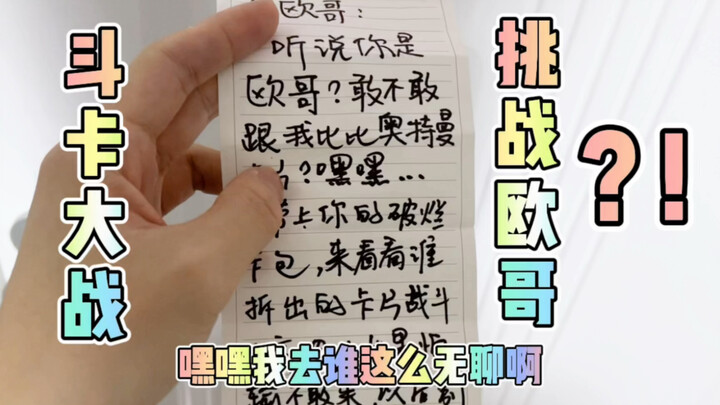 斗卡大战
挑战欧哥
?!
欧哥：
听说你是
欧哥？敢不敢
跟我比比奥特曼
？嘿嘿…
上你的破烂
卡包，来看看谁
拆出的卡片战斗
嘿嘿我去谁这么无聊啊
输不敢来，以后别